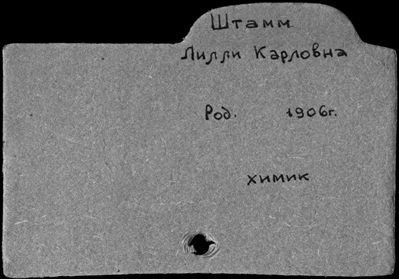 Штамм
Лилли Карловна
Род. 1906г.
химик